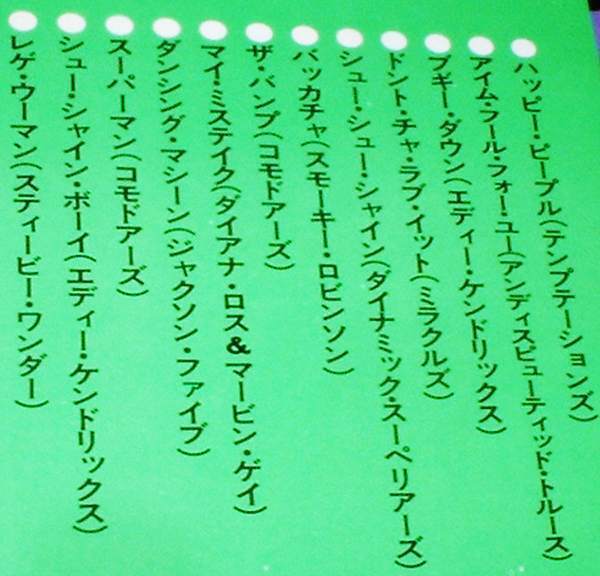 ●ハッピー・ピープル(テンプテーションズ)
●アイム・フール・フォー・ユー(アンディスピューティッド・トルース)
●ブギー・ダウン(エディー・ケンドリックス)
●ドント・チャ・ラブ・イット(ミラクルズ)
●シュー・シュー・シャイン(ダイナミック・スーペリアーズ)
●バッカチャ(スモーキー・ロビンソン)
●ザ・バンプ(コモドアーズ)
●マイ・ミステイク(ダイアナ・ロス&マービン・ゲイ)
●ダンシング・マシーン(ジャクソン・ファイブ)
●スーパーマン(コモドアーズ)
●シュー・シャイン・ボーイ(エディー・ケンドリックス)
●レゲ・ウーマン(スティービー・ワンダー)